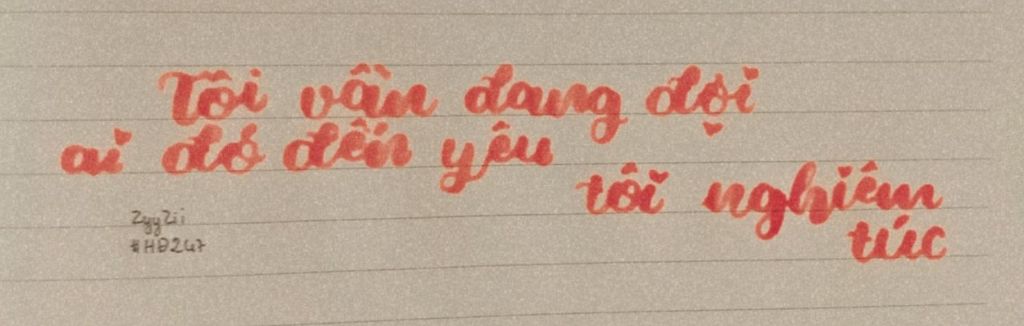 Tôi vẫn đang đợi
ai đó đến yêu
tôi nghiêm
túc
ZyyZii
#HĐ247